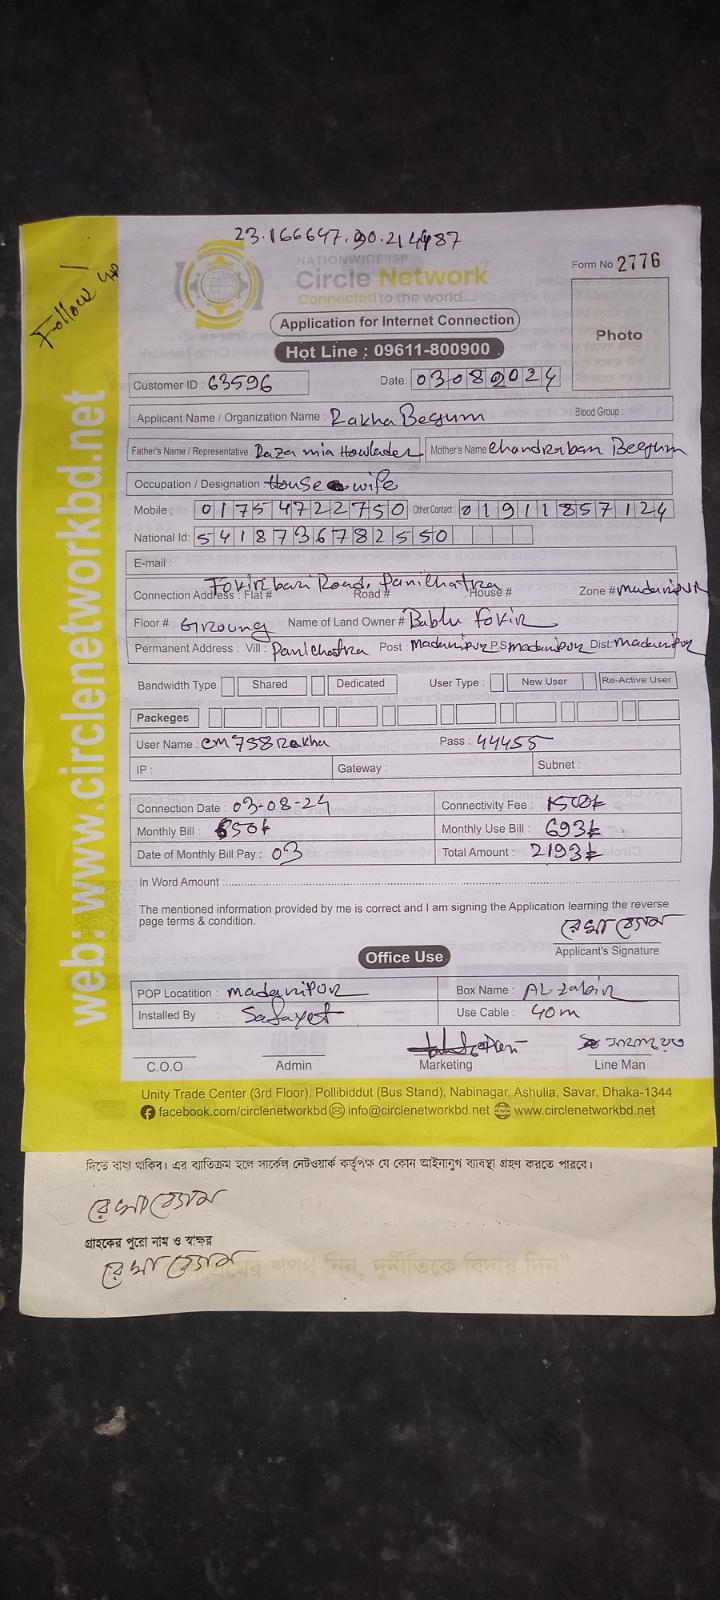 23.166647.90.214487
Follow up
NATIONWIDE ISP
Circle Network
Connected to the world
Form No 2776
Photo
Application for Internet Connection
Hot Line : 09611-800900
Customer ID : 63596 Date: 03082024
Applicant Name / Organization Name : Rakha Begum Blood Group :
Father's Name / Representative : Razamia Howlader Mother's Name Chandraban Beegum
Occupation / Designation House wife
Mobile : 01754722750 Other Contact : 01911857124
National Id: 5418736782550
E-mail :
Connection Address : Flat # Fokirbari Road, Panichatra Road # House # Zone # madaripur
Floor # Groung Name of Land Owner # Bablu Fokir
Permanent Address : Vill : Panichatra Post : madaripur P.S madaripur Dist: madaripur
Bandwidth Type Shared Dedicated User Type : New User Re-Active User
Packeges
User Name : cm758Rakha Pass : 44455
IP : Gateway : Subnet :
Connection Date : 03-08-24 Connectivity Fee : 1500/-
Monthly Bill : 650/- Monthly Use Bill : 693/-
Date of Monthly Bill Pay : 03 Total Amount : 2193/-
In Word Amount :
The mentioned information provided by me is correct and I am signing the Application learning the reverse
page terms & condition.
রেখা বেগম
Applicant's Signature
Office Use
POP Locatition : madaripur Box Name : AL-zabir
Installed By : Safayet Use Cable : 40m
C.O.O Admin Marketing Line Man
Unity Trade Center (3rd Floor), Pollibiddut (Bus Stand), Nabinagar, Ashulia, Savar, Dhaka-1344
facebook.com/circlenetworkbd info@circlenetworkbd.net www.circlenetworkbd.net
web: www.circlenetworkbd.net
দিতে বাধ্য থাকিব। এর ব্যতিক্রম হলে সার্কেল নেটওয়ার্ক কর্তৃপক্ষ যে কোন আইনানুগ ব্যবস্থা গ্রহণ করতে পারবে।
রেখা বেগম
গ্রাহকের পুরো নাম ও স্বাক্ষর
রেখা বেগম
শপথ নিন, দুর্নীতিকে বিদায় দিন"